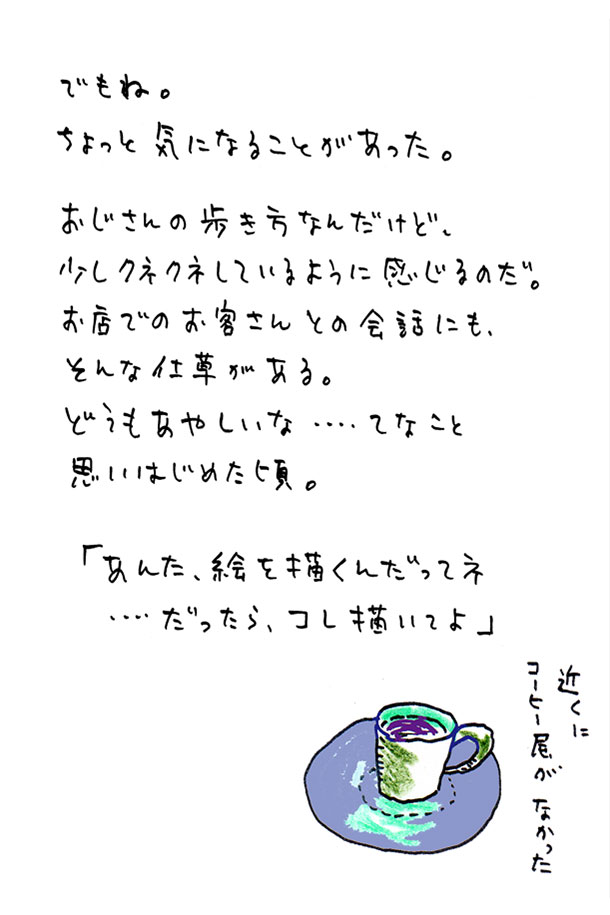 でもね。
ちょっと気になることがあった。
おじさんの歩き方なんだけど、
少しクネクネしているように感じるのだ。
お店でのお客さんとの会話にも、
そんな仕草がある。
どうもあやしいな‥‥てなこと
思いはじめた頃。
「あんた、絵を描くんだってネ
‥‥だったら、コレ描いてよ」
近くに
コーヒー屋がなかった